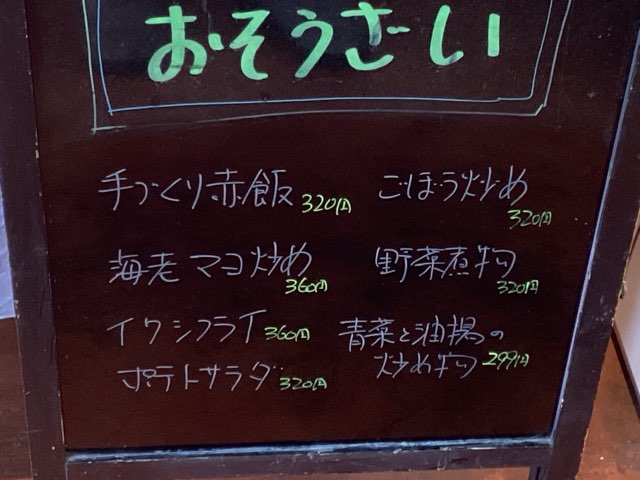 おそうざい
手づくり赤飯 320円
ごぼう炒め
320円
海老マヨ炒め
360円
野菜煮物
320円
イワシフライ 360円
青菜と油揚の
炒め物 299円
ポテトサラダ 320円